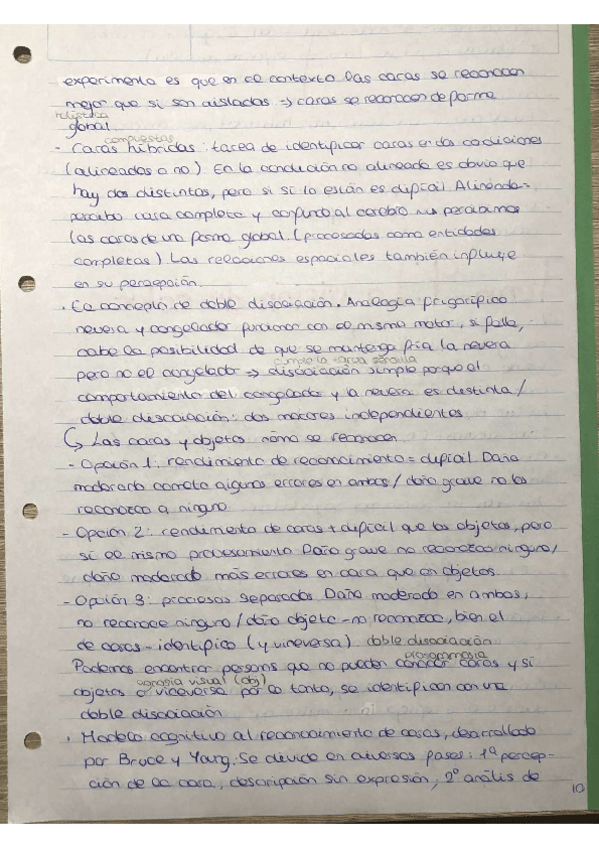 experimento es que en el contexto las caras se reconocen
mejor que si son aisladas => caras se reconocen de forma
holística
global.
compuestas
- Caras híbridas: tarea de identificar caras en dos condiciones
(alineadas o no). En la condición no alineada es obvio que
hay dos distintas, pero si sí lo están es difícil. Alineada =
percibo cara completa y confundo al cerebro, nos percibimos
las caras de una forma global. (procesadas como entidades
completas) Las relaciones espaciales también influye
en su percepción.
· El concepto de doble disociación. Analogía frigorífico
nevera y congelador funcionan con el mismo motor, si falla,
cabe la posibilidad de que se mantenga fría la nevera
pero no el congelador => disociación simple porque el
cumple la tarea sencilla
comportamiento del congelador y la nevera es distinta /
doble disociación: dos motores independientes
↳ Las caras y objetos cómo se reconocen
- Opción 1: rendimiento de reconocimiento = difícil. Daño
moderado cometo algunos errores en ambos / daño grave no los
reconozco a ninguno
- Opción 2: rendimiento de caras + difícil que los objetos, pero
sí el mismo procesamiento. Daño grave no reconozco ninguno /
daño moderado más errores en cara que en objetos
- Opción 3: procesos separados. Daño moderado en ambos,
no reconoce ninguno / daño objeto - no reconozco, bien el
de caras - identifico (y viceversa) doble disociación
prosopagnosia
Podemos encontrar persons que no pueden conocer caras y sí
agnosia visual (obj)
objetos o viceversa por lo tanto, se identifican con una
doble disociación
· Modelo cognitivo al reconocimiento de caras, desarrollado
por Bruce y Young. Se divide en diversas fases: 1ª percep-
ción de la cara, descripción sin expresión, 2º anális de
10